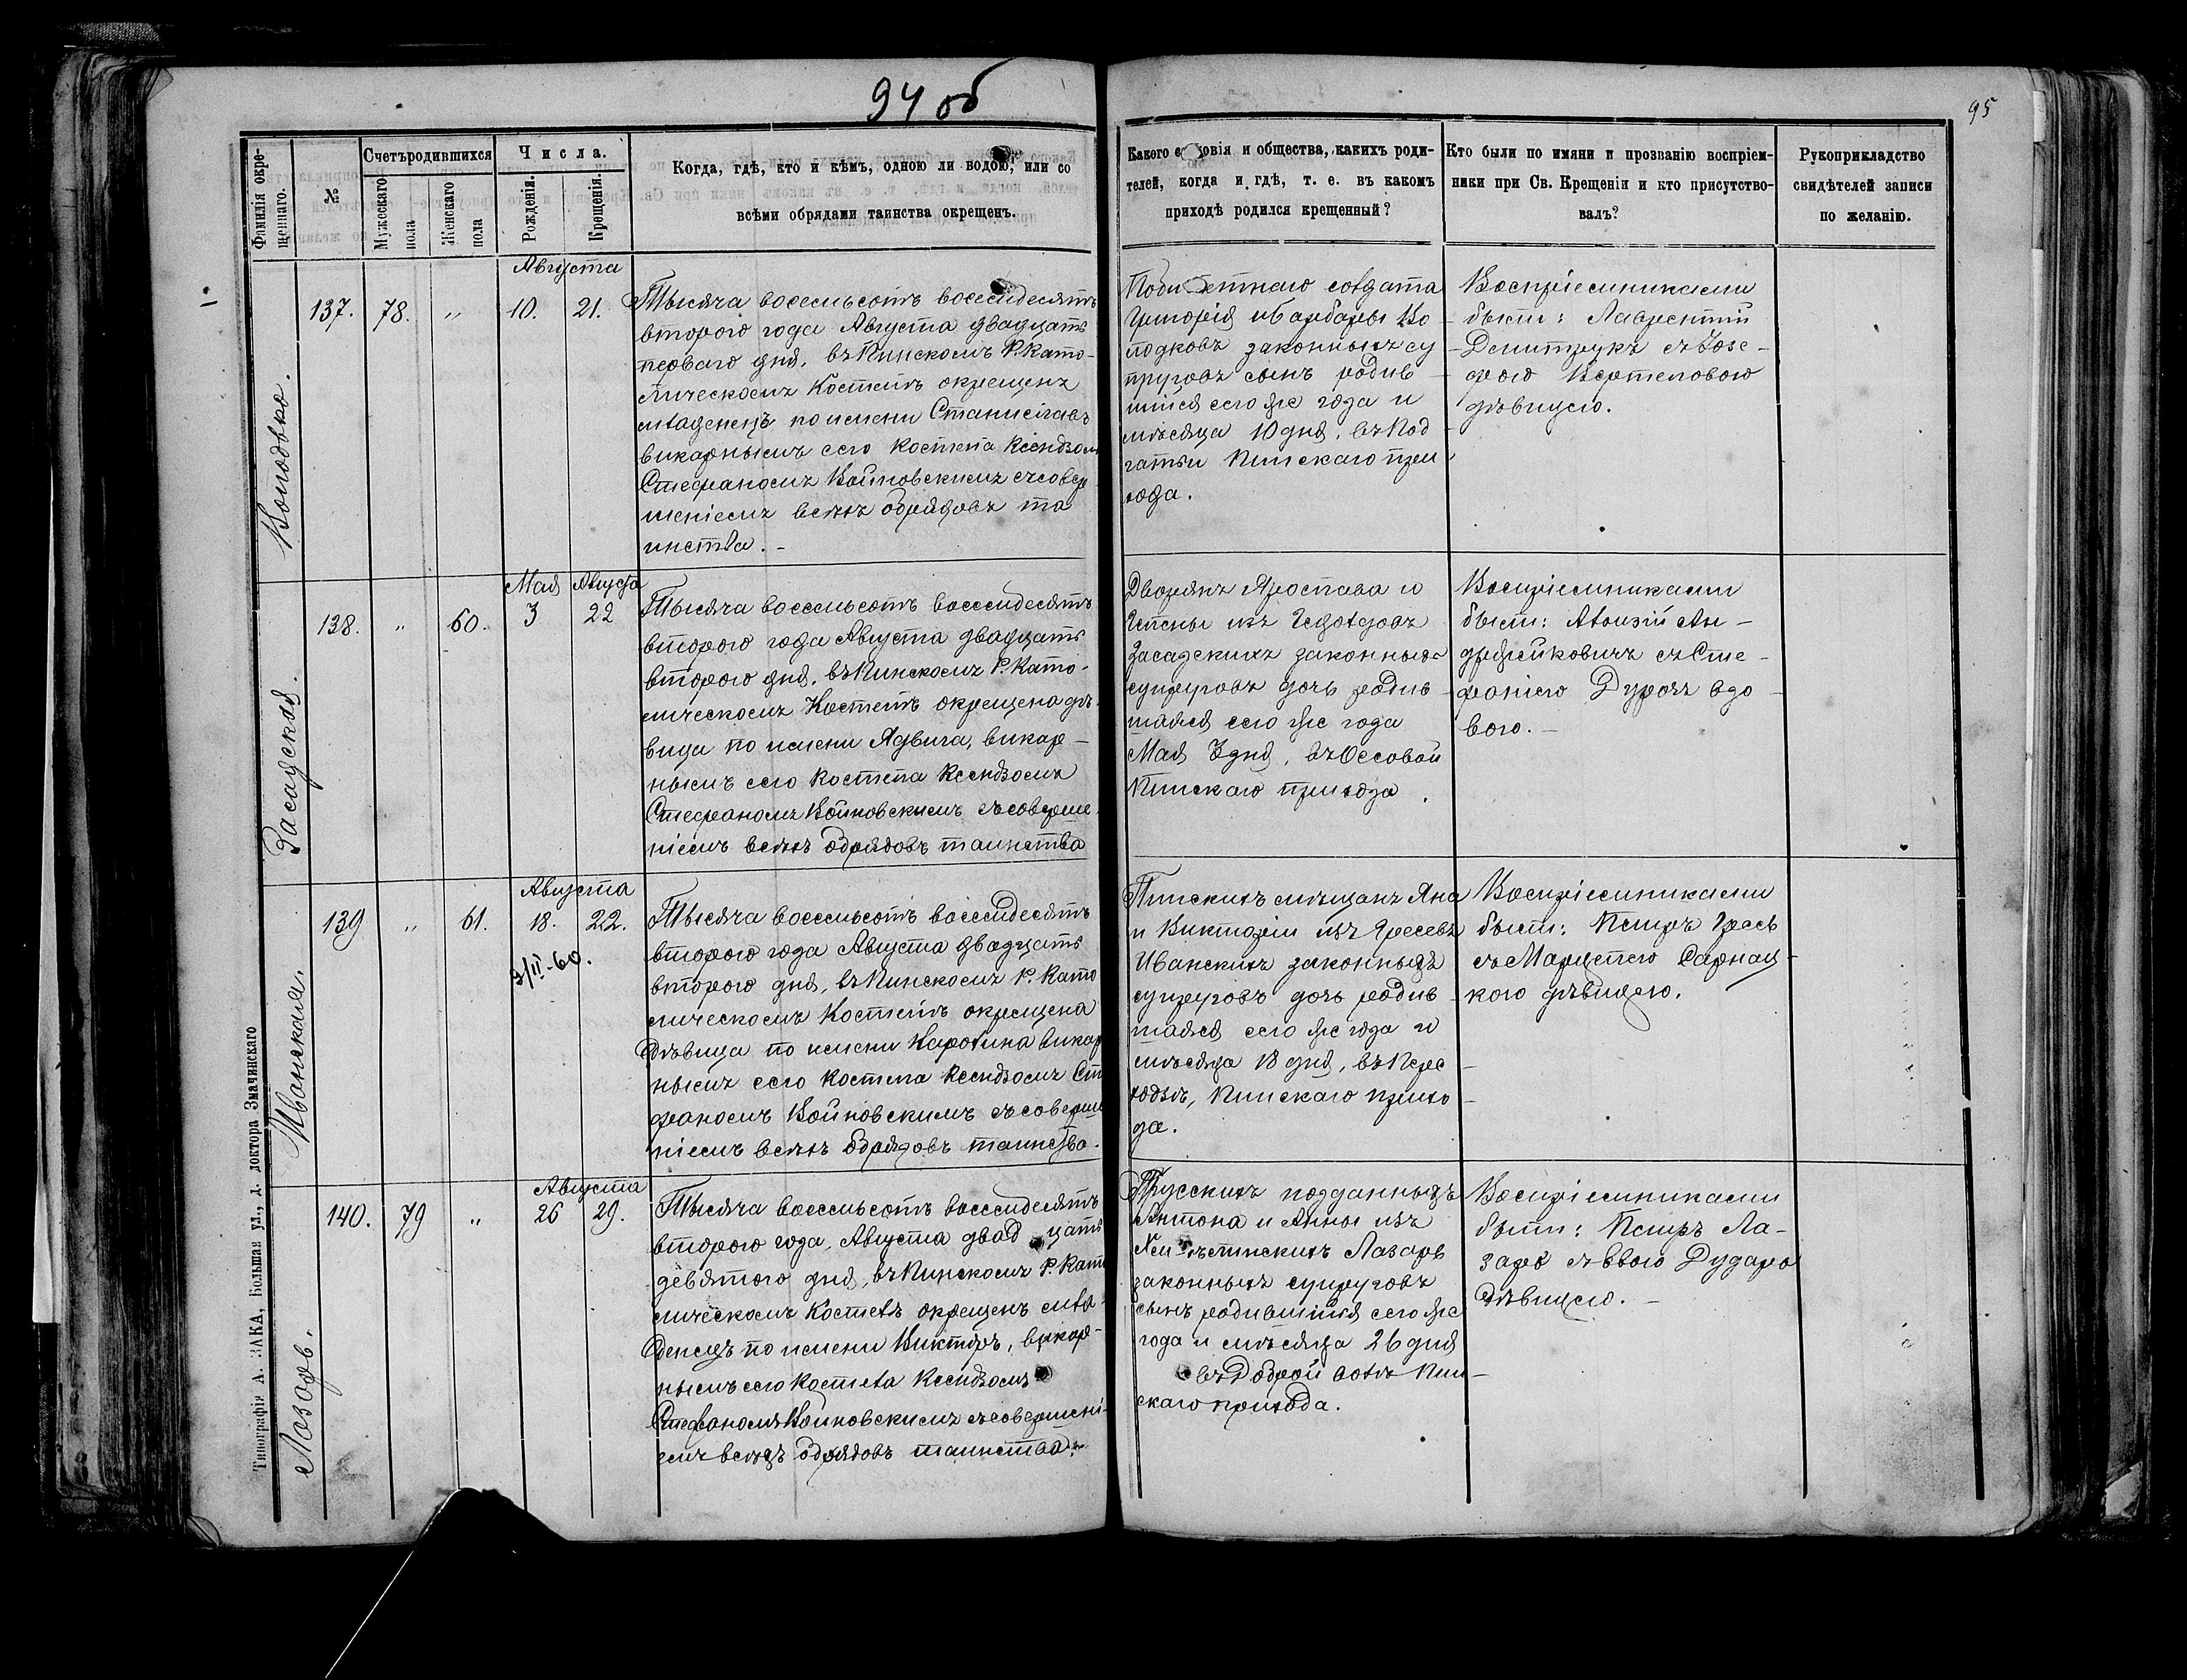 94 об
95
Фамилія окре-
щеннаго.
№
Счетъ родившихся
Мужескаго
пола
Женскаго
пола
Числа.
Рожденія.
Крещенія.
Когда, гдѣ, кто и кѣмъ, одною ли водою, или со
всѣми обрядами таинства окрещенъ.
Какого сословія и общества, какихъ роди-
телей, когда и гдѣ, т. е. въ какомъ
приходѣ родился крещенный?
Кто были по имяни и прозванію воспріем-
ники при Св. Крещеніи и кто присутство-
валъ?
Рукоприкладство
свидѣтелей записи
по желанію.
Колодко.
137. 78. " 10. 21.
Августа
Тысяча восемьсотъ восемдесятъ
второго года Августа двадцать
перваго дня, въ Пинскомъ Р. Като-
лическомъ Костелѣ окрещенъ
младенецъ по имени Станиславъ
викарнымъ сего Костела Ксендзом
Стефаномъ Войновскимъ съ совер
шеніемъ всѣхъ обрядовъ та
инства. -
солдата
Григорія и Барбары Ко
лодковъ законныхъ су
пруговъ сынъ родив
шійся сего же года и
мѣсяца 10 дня, въ Под
гатьи Пинскаго при
хода.
Воспріемниками
были: Лаврентій
Демитрукъ съ Юзе-
фою
дѣвицею.
Засадская.
138. " 60. 3 22
Мая Августа
Тысяча восемьсотъ восемдесятъ
второго года Августа двадцать
второго дня, въ Пинскомъ Р. Като-
лическомъ Костелѣ окрещена дѣ-
вица по имени Ядвига, викар-
нымъ сего Костела Ксендзомъ
Стефаномъ Войновскимъ съ соверше
ніемъ всѣхъ обрядовъ таинства
Дворянъ Ярослава и
Гелены изъ
Засадскихъ законныхъ
супруговъ дочь родив-
шаяся сего же года
Мая 3 дня, въ Оссовой
Пинскаго прихода.
Воспріемниками
были: Алоизій Ан-
држейковичъ съ Сте-
фаніею вдо-
вою. -
Иванская.
139 " 61. 18. 22.
Августа
9/II-60.
Тысяча восемьсотъ восемдесятъ
второго года Августа двадцать
второго дня, въ Пинскомъ Р. Като
лическомъ Костелѣ окрещена
дѣвица по имени Каролина викар
нымъ сего Костела Ксендзомъ Сте
фаномъ Войновскимъ съ соверше
ніемъ всѣхъ обрядовъ таинства.
Пинскихъ мѣщанъ Яна
и Викторіи изъ
Иванскихъ законныхъ
супруговъ дочь родив-
шаяся сего же года и
мѣсяца 18 дня, въ Пере-
ходѣ, Пинскаго прихо-
да.
Воспріемниками
были: Петръ
съ Марцелею Сарнац-
кою дѣвицею.
Лазарь.
140. 79 " 26 29.
Августа
Тысяча восемьсотъ восемдесятъ
второго года, Августа двадцать
девятого дня, въ Пинскомъ Р. Като
лическомъ Костелѣ окрещенъ мла-
денецъ по имени Викторъ, викар-
нымъ сего Костела Ксендзомъ
Стефаномъ Войновскимъ съ совершені-
емъ всѣхъ обрядовъ таинства. -
Прусскихъ подданныхъ
Антона и Анны изъ
Лазарь
законныхъ супруговъ
сынъ родившійся сего же
года и мѣсяца 26 дня
въ Доброй волѣ Пин-
скаго прихода.
Воспріемниками
были: Петръ Ла-
зарь съ Евою Дударь
дѣвицею. -
Типографія А. ЗАКА, Большая ул., д. доктора Змачинскаго